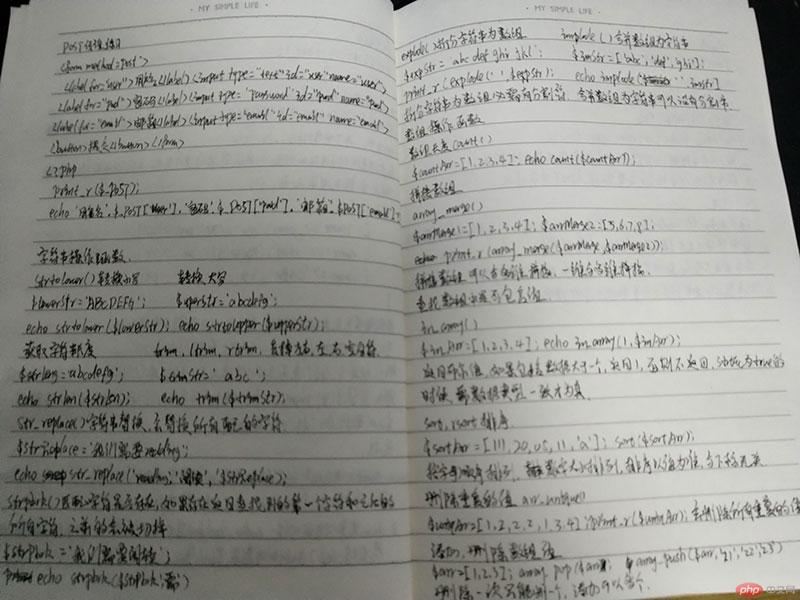 · MY SIMPLE LIFE ·
POST 传值练习
<form method='post'>
<label for="user">用户名</label><input type="text" id="user" name="user">
<label for="pwd">密码</label><input type='password' id="pwd" name="pwd">
<label for="email">邮箱</label><input type="email" id="email" name="email">
<button>提交</button></form>
<?php
print_r($_POST);
echo '用户名',$_POST['user'],'密码',$_POST["pwd"],'邮箱',$_POST['email'];
字符串操作函数
strtolower()转换小写 转换大写
$lowerStr='ABCDEFG'; $upperStr='abcdefg';
echo strtolower($lowerStr); echo strtoupper($upperStr);
获取字符长度 trim, ltrim, rtrim, 去掉左右,左,右空白符
$strlen='abcdefg'; $trimStr=' abc ';
echo strlen($strlen); echo trim($trimStr);
str_replace()字符串替换,会替换所有匹配的字符
$strReplace='我们需要reading';
echo str_replace('reading','阅读',$strReplace);
strpbrk()匹配字符是否存在,如果存在返回查找到的第一个字符和之后的
所有字符,之前的
$strPbrk='我们需要阅读';
echo strpbrk($strPbrk,'需')
· MY SIMPLE LIFE ·
explode()拆分字符串为数组 implode()合并数组为字符串
$expStr='abc def ghi jkl'; $imStr=['abc','def','ghi'];
print_r(explode(' ',$expStr); echo implode(' ',imstr)
拆分字符串为数组必需有分割符,合并数组为字符串可以没有分割符.
数组操作函数
数组长度 count()
$countArr=[1,2,3,4]; echo count($countArr);
拼接数组
array_merge()
$arrMerge1=[1,2,3,4]; $arrMerge2=[5,6,7,8];
print_r(array_merge($arrMerge,$arrMerge2));
拼接数组可以 拼接,一维 拼接.
查找数组中是否包含值
in_array()
$inArr=[1,2,3,4]; echo in_array(1,$inArr);
返回布尔值,如果包含数据大于一个,返回1,否则不返回,为true的
时候,需数据类型一致才为真
sort, rsort排序
$sortArr=[111,20,05,11,'a']; sort($sortArr);
按字母顺序排列, 数字大小排列,排序以值为准,与下标无关
删除重复的值 arr_unique()
=[1,2,2,2,1,3,4]; 会删除所有重复的值
添加,删除数组值
$arr=[1,2,3]; array_pop($arr); array_push($arr,'21','22','23')
删除一次只能删一个,添加可以多个.
php 中文网